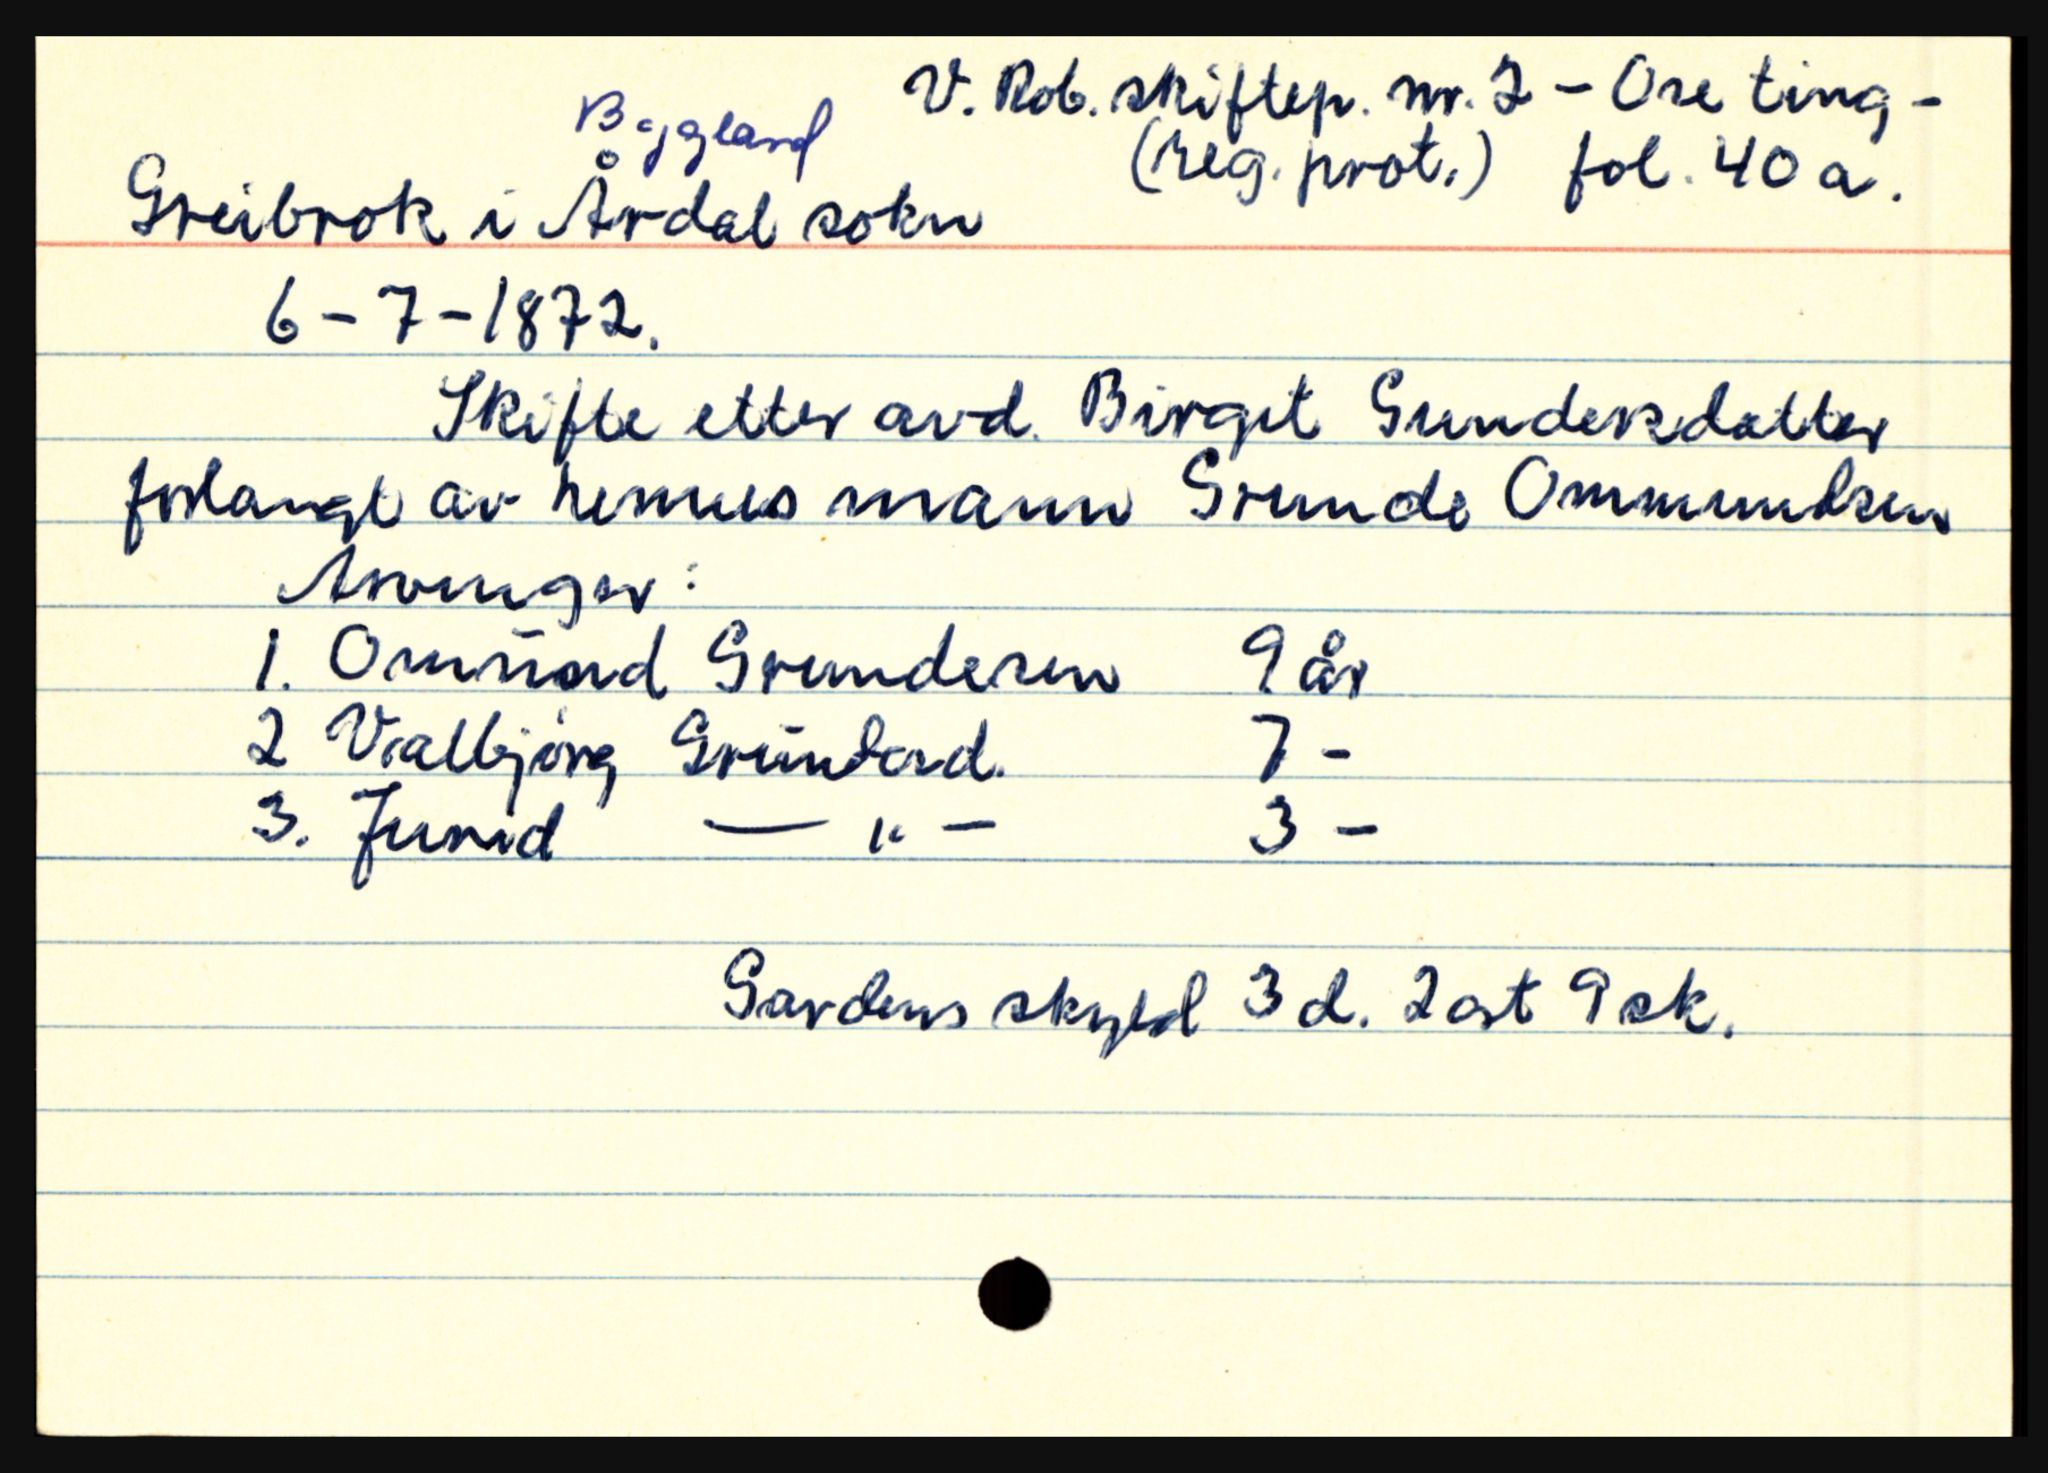 V. Rob. skiftep. nr. 2 - Ose ting -
(reg. prot.) fol. 40 a.
Byggland
Greibrok i Årdal sokn
6-7-1872.
Skifte etter avd. Birgit Gundersdatter
forlangt av hennes mann Grunde Ommundsen
Arvinger:
1. Omūnd Grundesen 9 år
2 Valbjørg Grūndesd. 7 -
3. Jurid — " — 3 -
Gardens skyld 3 d. 2 ort 9 sk.